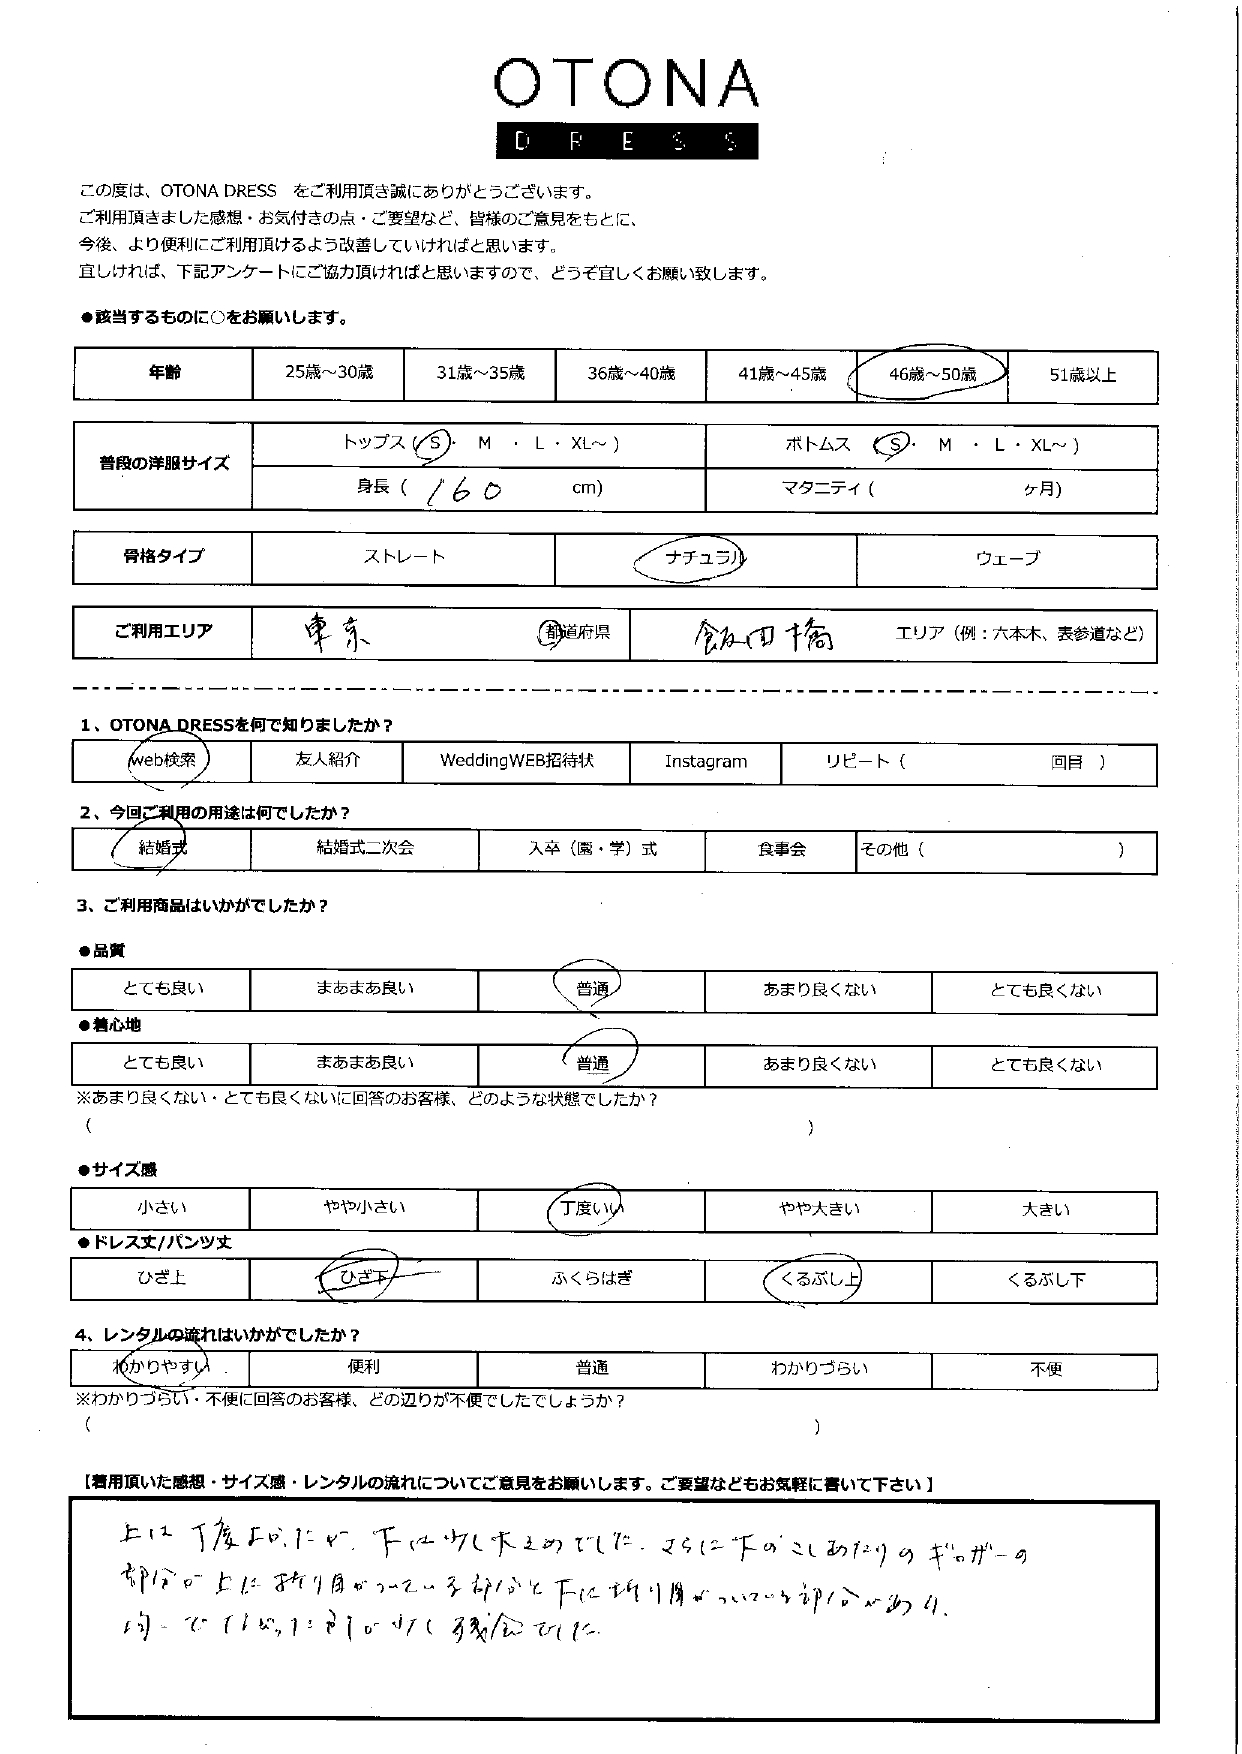 OTONA
DRESS
この度は、OTONA DRESS　をご利用頂き誠にありがとうございます。
ご利用頂きました感想・お気付きの点・ご要望など、皆様のご意見をもとに、
今後、より便利にご利用頂けるよう改善していければと思います。
宜しければ、下記アンケートにご協力頂ければと思いますので、どうぞ宜しくお願い致します。
●該当するものに○をお願いします。
年齢 25歳～30歳 31歳～35歳 36歳～40歳 41歳～45歳 46歳～50歳 51歳以上
普段の洋服サイズ トップス (S)・ M ・ L ・ XL～ ) ボトムス (S)・ M ・ L ・ XL～ )
身長 ( 160 cm) マタニティ ( ヶ月)
骨格タイプ ストレート ナチュラル ウェーブ
ご利用エリア 東京 都道府県 飯田橋 エリア（例：六本木、表参道など）
1、OTONA DRESSを何で知りましたか？
web検索 友人紹介 WeddingWEB招待状 Instagram リピート（ 回目 ）
2、今回ご利用の用途は何でしたか？
結婚式 結婚式二次会 入卒（園・学）式 食事会 その他（ ）
3、ご利用商品はいかがでしたか？
●品質
とても良い まあまあ良い 普通 あまり良くない とても良くない
●着心地
とても良い まあまあ良い 普通 あまり良くない とても良くない
※あまり良くない・とても良くないに回答のお客様、どのような状態でしたか？
（ ）
●サイズ感
小さい やや小さい 丁度いい やや大きい 大きい
●ドレス丈/パンツ丈
ひざ上 ひざ下 ふくらはぎ くるぶし上 くるぶし下
4、レンタルの流れはいかがでしたか？
わかりやすい 便利 普通 わかりづらい 不便
※わかりづらい・不便に回答のお客様、どの辺りが不便でしたでしょうか？
（ ）
【着用頂いた感想・サイズ感・レンタルの流れについてご意見をお願いします。ご要望などもお気軽に書いて下さい 】
上は丁度よかったが、下は少し大きめでした。さらに下のこしあたりのギャザーの
部分が上に折り目がついている部分と下に折り目がついている部分があり、
均一でなかった所が少し残念でした。